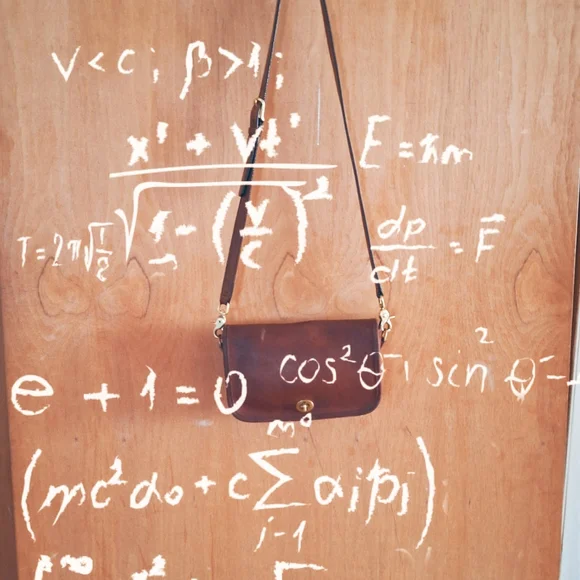 v < c ; β > 1 ;
x' + Vt' / √1 - (v/c)² E = ħm
T = 2π√1/g dp/dt = F⃗
e + 1 = 0 cos²θ + sin²θ =
(mc²α₀ + c Σ αⱼpⱼ)
j-1